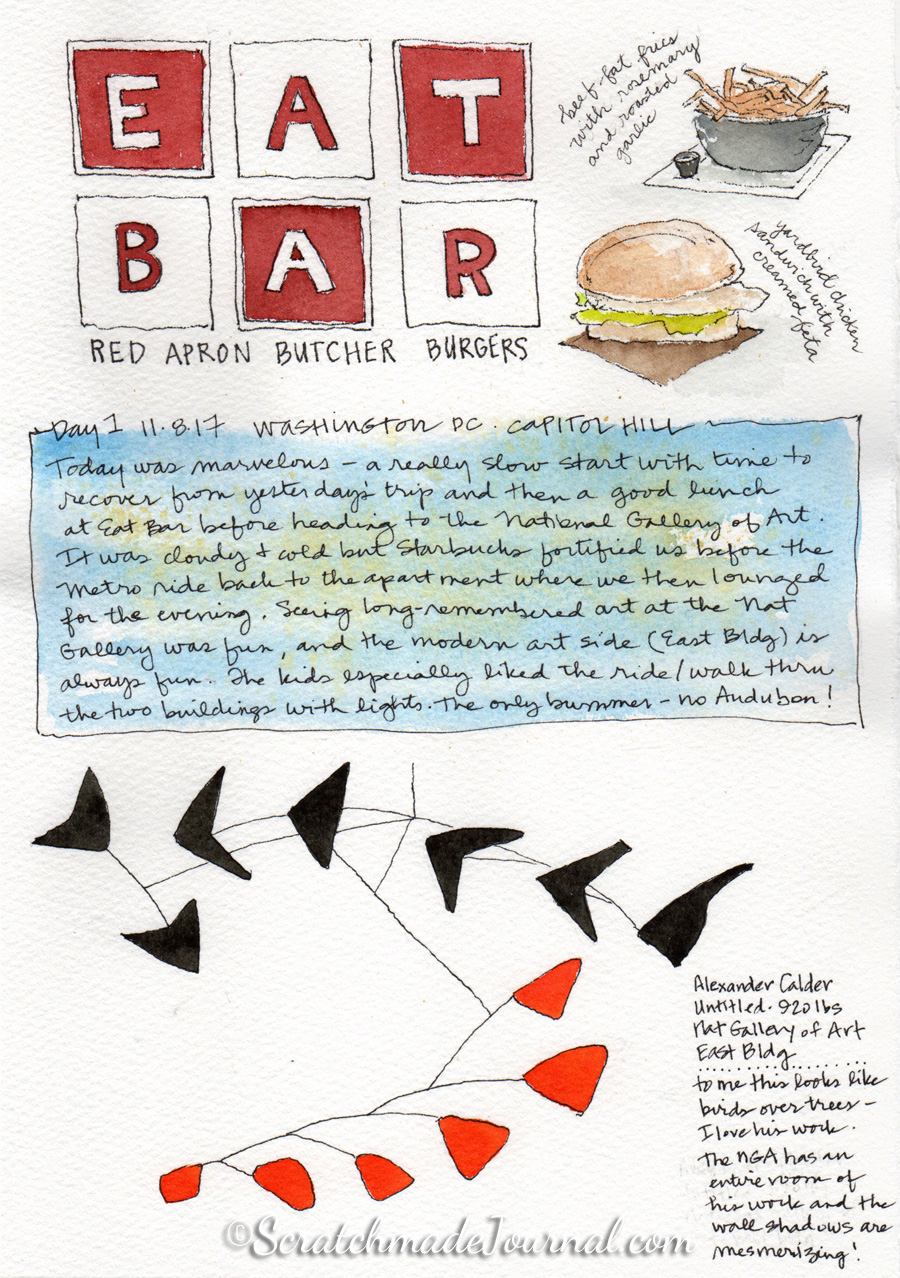 EAT
BAR
RED APRON BUTCHER BURGERS
beef-fat fries
with rosemary
and roasted
garlic
yardbird chicken
sandwich with
creamed feta
Day 1 11.8.17 WASHINGTON DC. CAPITOL HILL
Today was marvelous – a really slow start with time to
recover from yesterday's trip and then a good lunch
at Eat Bar before heading to the National Gallery of Art.
It was cloudy & cold but Starbucks fortified us before the
Metro ride back to the apartment where we then lounged
for the evening. Seeing long-remembered art at the Nat
Gallery was fun, and the modern art side (East Bldg) is
always fun. The kids especially liked the ride/walk thru
the two buildings with lights. The only bummer – no Audubon!
Alexander Calder
Untitled. 920 lbs
Nat Gallery of Art
East Bldg
to me this looks like
birds over trees –
I love his work.
The NGA has an
entire room of
his work and the
wall shadows are
mesmerizing!
©ScratchmadeJournal.com